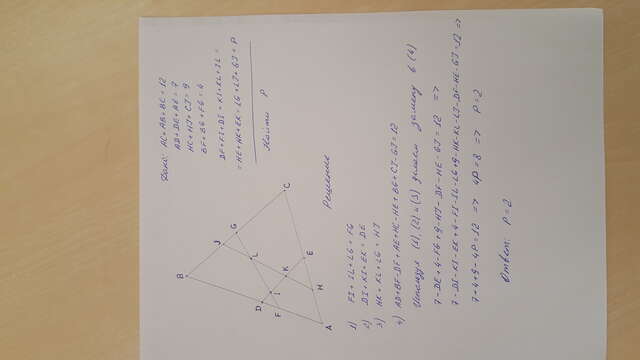 B
J
G
D
L
F
I
K
C
E
H
A
Дано: AC+AB+BC=12
AD+DE+AE=7
HC+HJ+CJ=9
BF+BG+FG=4
DF+FI+DI=KI+KL+IL=
=HE+HK+EK=LG+LJ+GJ=P
Найти P
Решение
1) FI+IL+LG=FG
2) DI+KI+EK=DE
3) HK+KL+LG=HJ
4) AD+BF-DF+AE+HC-HE+BG+CJ-GJ=12
Используя (1), (2) и (3) делаем замену в (4)
7-DE+4-FG+9-HJ-DF-HE-GJ=12 =>
7-DI-KI-EK+4-FI-IL-LG+9-HK-KL-LJ-DF-HE-GJ=12 =>
7+4+9-4P=12 => 4P=8 => P=2
Ответ: P=2